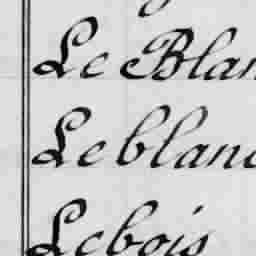 Le Blan
Leblanc
Lebois